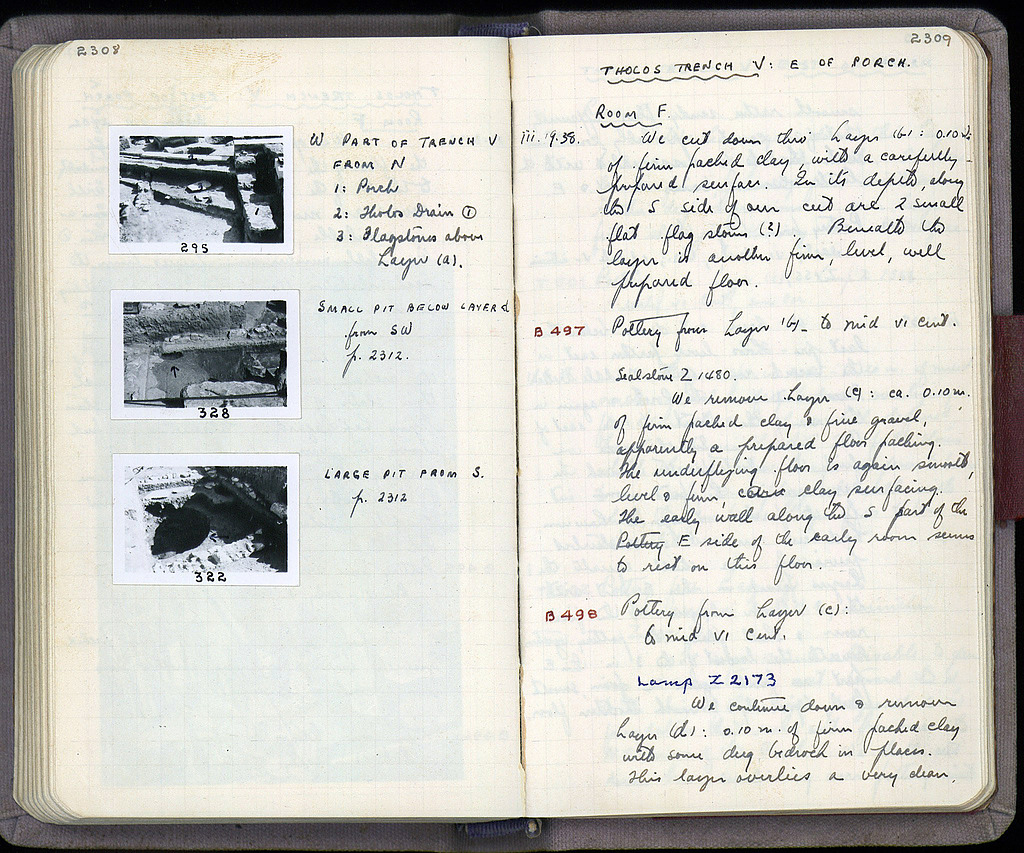 2308
W PART OF TRENCH V
FROM N
1: Porch
2: Tholos Drain ①
3: Flagstones above
Layer (a).
295
SMALL PIT BELOW LAYER d
from SW
p. 2312.
328
LARGE PIT FROM S.
p. 2312
322
2309
THOLOS TRENCH V: E OF PORCH.
ROOM F.
iii.19.38. We cut down thru Layer (b): 0.10 m.
of firm packed clay with a carefully
prepared surface. In its depth, along
the S side of our cut are 2 small
flat flag stones (?). Beneath the
layer is another firm, level, well
prepared floor.
B 497 Pottery from Layer (b) - to mid VI cent.
Sealstone Z 1480.
We remove Layer (c): ca. 0.10 m.
of firm packed clay & fine gravel,
apparently a prepared floor packing.
The underlying floor is again smooth,
level & firm, clay surfacing.
The early wall along the S part of the
Pottery E side of the early room seems
to rest on this floor.
B 498 Pottery from Layer (c):
to mid VI cent.
Lamp Z 2173
We continue down & remove
Layer (d): 0.10 m. of firm packed clay
with some dug bedrock in places.
This layer overlies a very clean,